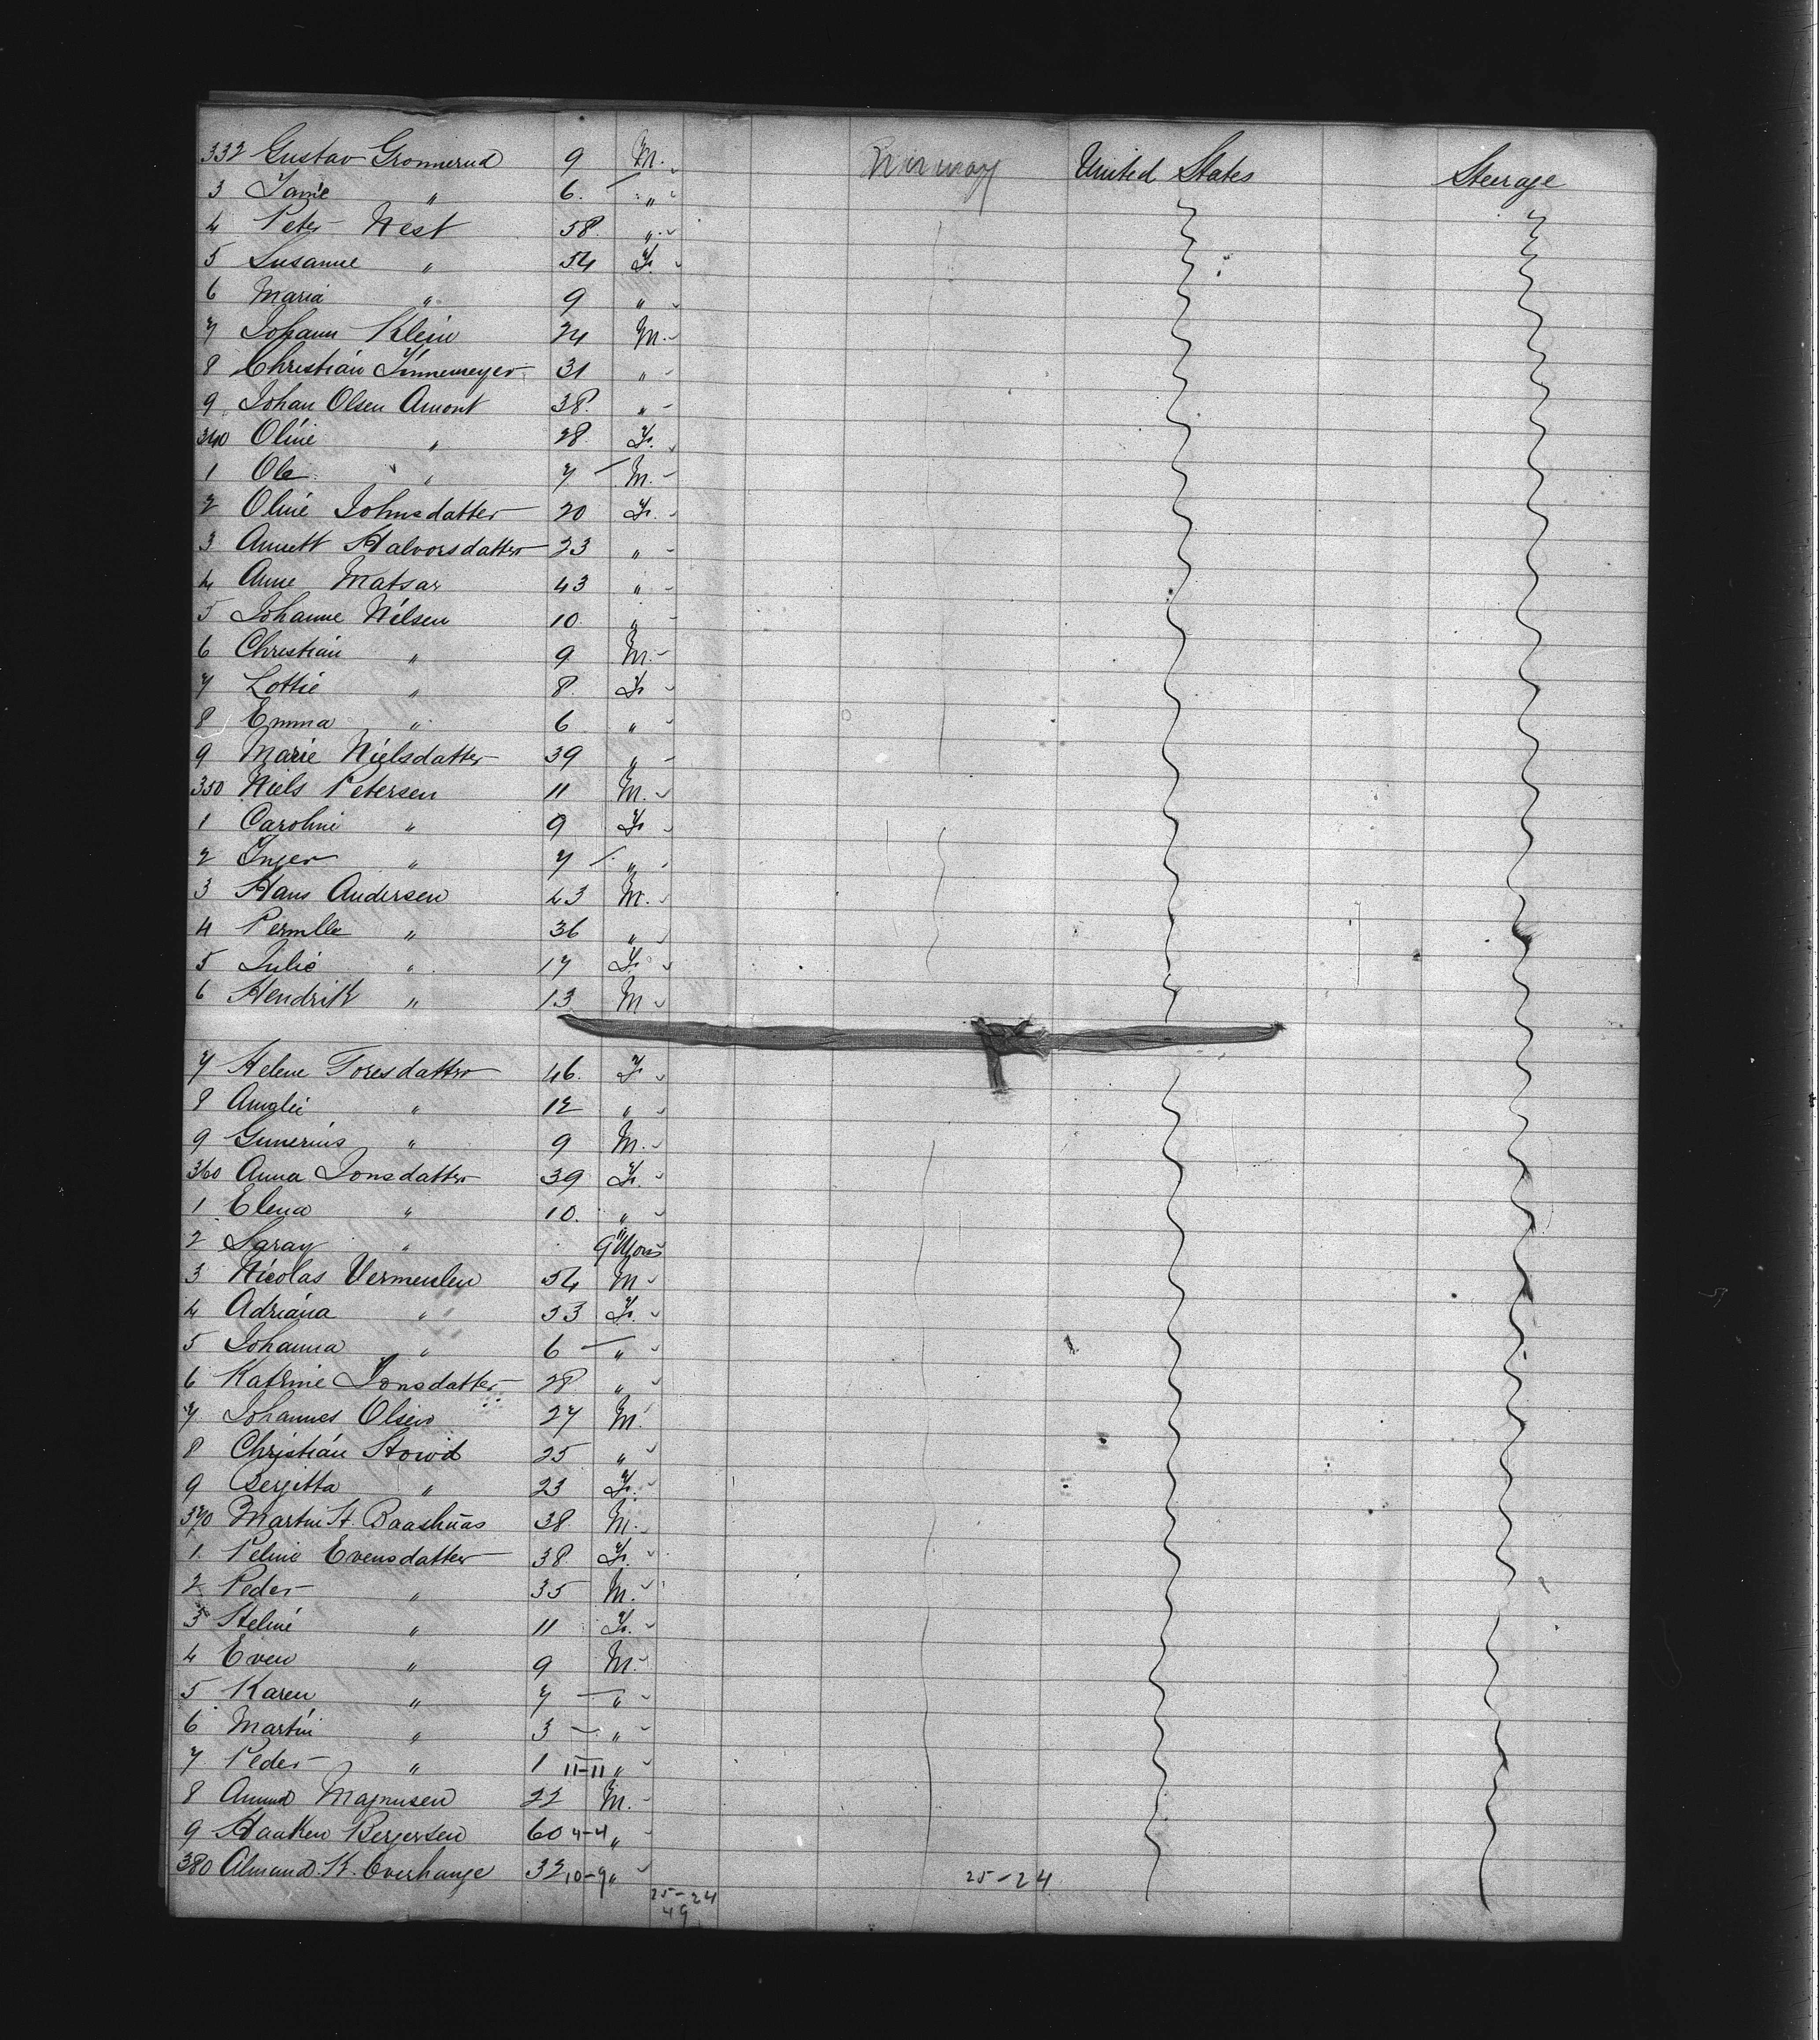 332 Gustav Gronnerud 9 M. Norway United States Steerage
3 Janie " 6 "
4 Peter West 58 "
5 Susanne " 54 F.
6 Maria " 9 "
7 Johann Klein 24 M.
8 Christian Finnemeyer 31 "
9 Johan Olsen Amont 38 "
340 Oline " 28 F.
1 Ole " 7 M.
2 Oline Johnsdatter 20 F.
3 Annett Halvorsdatter 23 "
4 Anne Matsar 43 "
5 Johanne Nilsen 10 "
6 Christian " 9 M.
7 Lottie " 8 F.
8 Emma " 6 "
9 Marie Nielsdatter 39 "
350 Niels Petersen 11 M.
1 Caroline " 9 F.
2 Inger " 7 "
3 Hans Andersen 43 M.
4 Pernille " 36 "
5 Julie " 17 F.
6 Hendrik " 13 M
7 Helene Toresdatter 46 F
8 Amalie " 12 "
9 Gunerius " 9 M.
360 Anna Jonsdatter 39 F.
1 Elena " 10 "
2 " 9 Mons
3 Nicolas Vermeulen 54 M
4 Adriana " 33 F.
5 Johanna " 6 "
6 Katrine Jonsdatter 28 "
7 Johannes Olsen 27 M.
8 Christian Stowd 25 "
9 Bergitta " 23 F.
370 Martin St. Baashuas 38 M.
1 Peline Evensdatter 38 F.
2 Peder " 35 M.
3 Heline " 11 F.
4 Even " 9 M.
5 Karen " 7 "
6 Martin " 3 "
7 Peder " 1 11-11 "
8 Amund Magnusen 22 M.
9 Haaken Bergersen 60 4-4 "
380 Almund K. Overhange 32 10-9 " 25-24
25-24
49